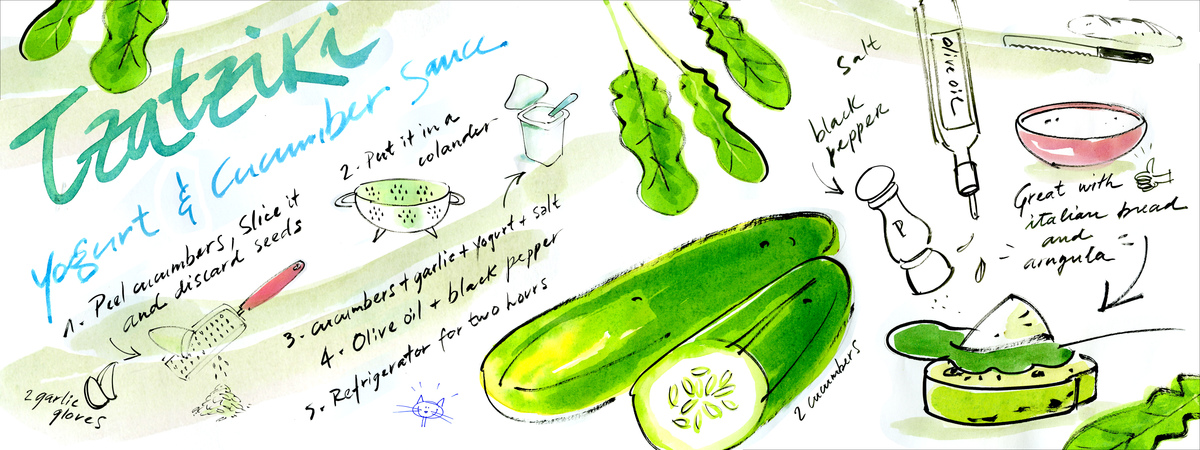 Tzatziki
Yogurt & Cucumber Sauce
1. Peel cucumbers, Slice it
and discard seeds
2 garlic
gloves
2. Put it in a
colander
3. cucumbers + garlic + yogurt + salt
4. Olive oil + black pepper
5. Refrigerator for two hours
2 cucumbers
Salt
black
pepper
P
olive oil
Great with
italian bread
and
arugula